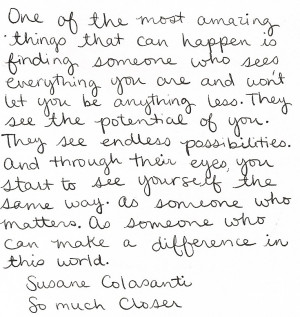 One of the most amazing
things that can happen is
finding someone who sees
everything you are and won't
let you be anything less. They
see the potential of you.
They see endless possibilities.
And through their eyes, you
start to see yourself the
same way. As someone who
matters. As someone who
can make a difference in
this world.
Susane Colasanti
So much Closer